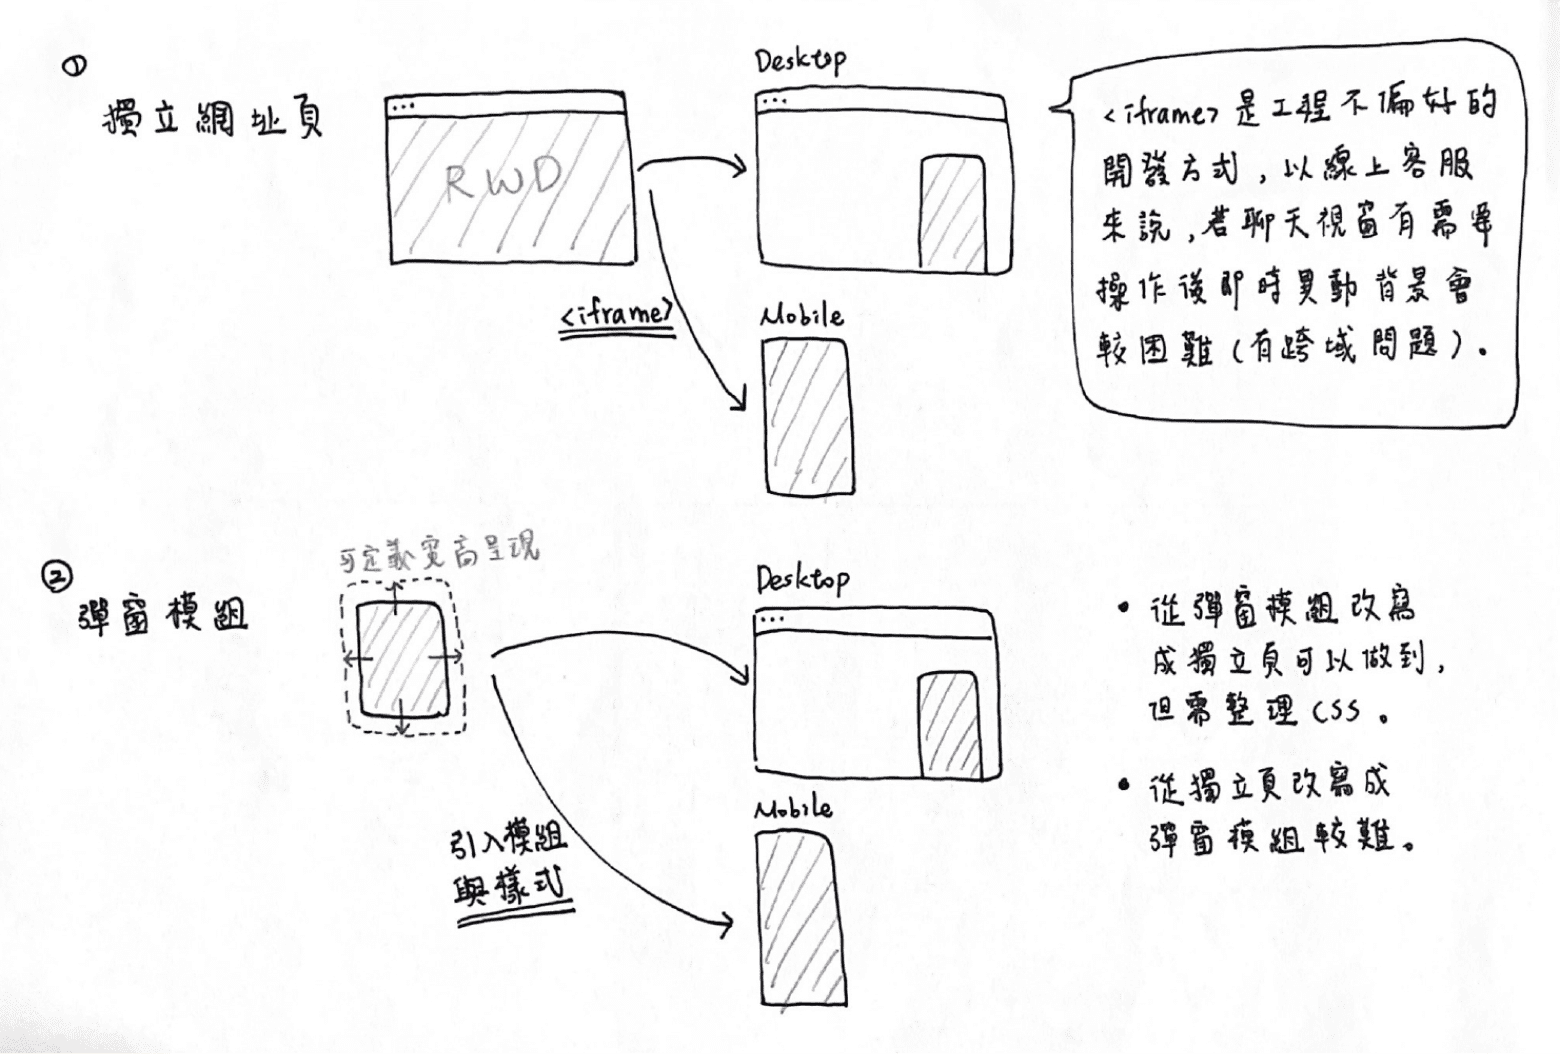 ①
獨立網址頁
RWD
<iframe>
Desktop
Mobile
<iframe> 是工程不偏好的
開發方式，以線上客服
來說，若聊天視窗有需要
操作後即時異動背景會
較困難（有跨域問題）。
②
彈窗模組
可定義寬高呈現
引入模組
與樣式
Desktop
Mobile
• 從彈窗模組改寫
成獨立頁可以做到，
但需整理CSS。
• 從獨立頁改寫成
彈窗模組較難。